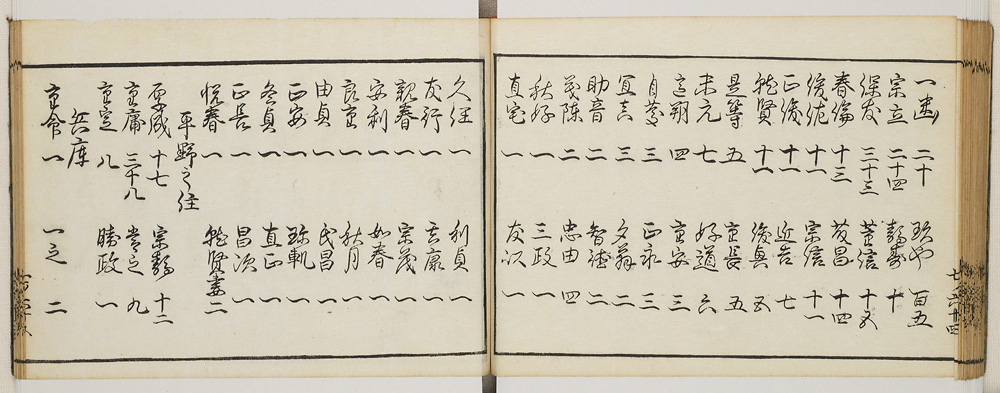 一幽 二十 玖也 百五
宗立 二十四 静壽 十
保友 三十三 重信 十五
春倫 十三 茂昌 十四
俊佐 十一 宗信 十一
正俊 十一 近吉 七
賢 十一 俊興 五
是等 五 重長 五
未元 七 好道 六
意朔 四 重安 三
自 三 正永 三
宜 三 翁 二
助音 二 智徳 二
茂陳 二 忠由 四
秋好 一 三政 一
直宅 一 友 一
久任 一 利貞 一
友行 一 玄康 一
親春 一 宗茂 一
安利 一 如春 一
良重 一 秋月 一
由貞 一 氏昌 一
正安 一 珎軌 一
貞 一 直正 一
正長 一 昌次 一
悦春 一 賢妻 二
平野之住
成 十七 宗静 十二
重庸 三十八 常之 九
重定 八 勝政 一
兵庫
重令 一 一之 二